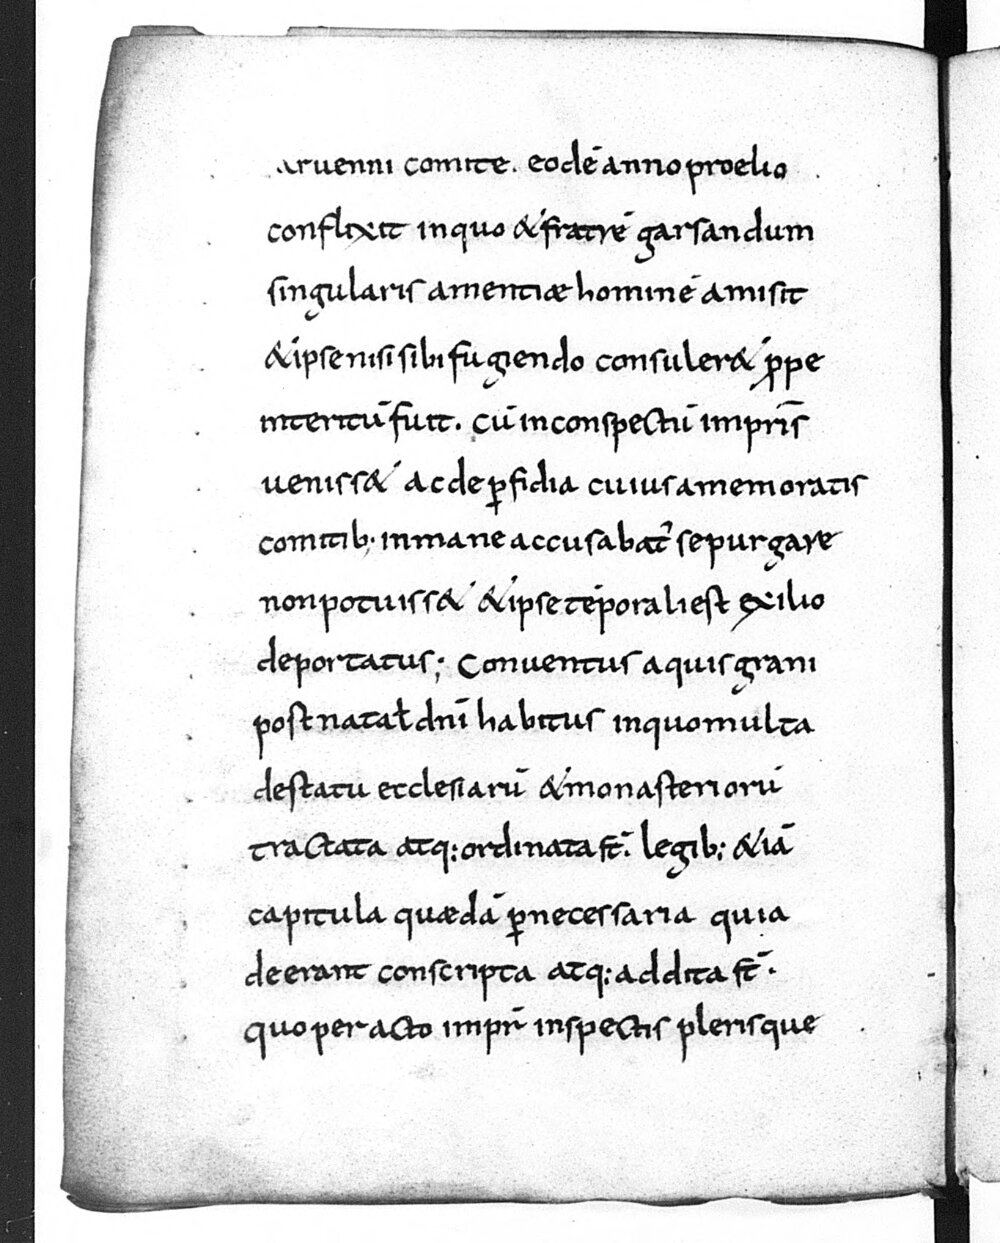 aruenni comite. eodē anno proelio
conflixit inquo & fratrē garsandum
singularis amentiæ hominē amisit
& ipse nisi sibi fugiendo consuler& ꝓpe
interitū fuit. Cū inconspectū impr̄is
uenisset& ac de ꝑfidia cuius a memoratis
comitib; inmane accusabat᷑ se purgare
non potuiss& & ipse tēporali est exilio
deportatus; Conuentus aquisgrani
post natal̄ dnī habitus inquo multa
destatu ecclesiarū & monasteriorū
tractata atq; ordinata st̄. legib; & iā
capitula quædā ꝑnecessaria quia
deerant conscripta atq; addita st̄.
quo peracto impr̄ inspectis plerisque